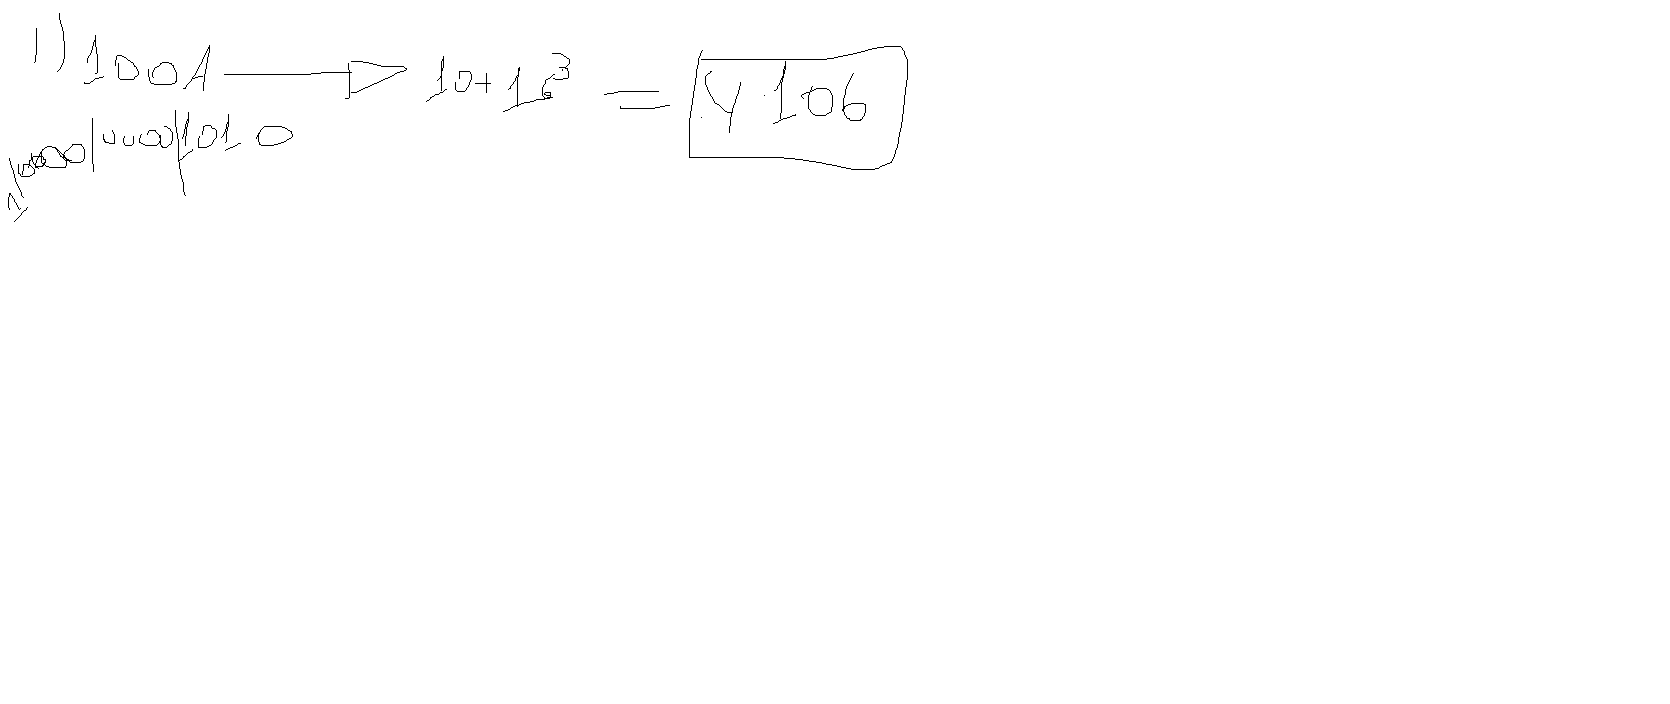 1) 100A → 10+16³ = 4106
1|0000|0000|1010